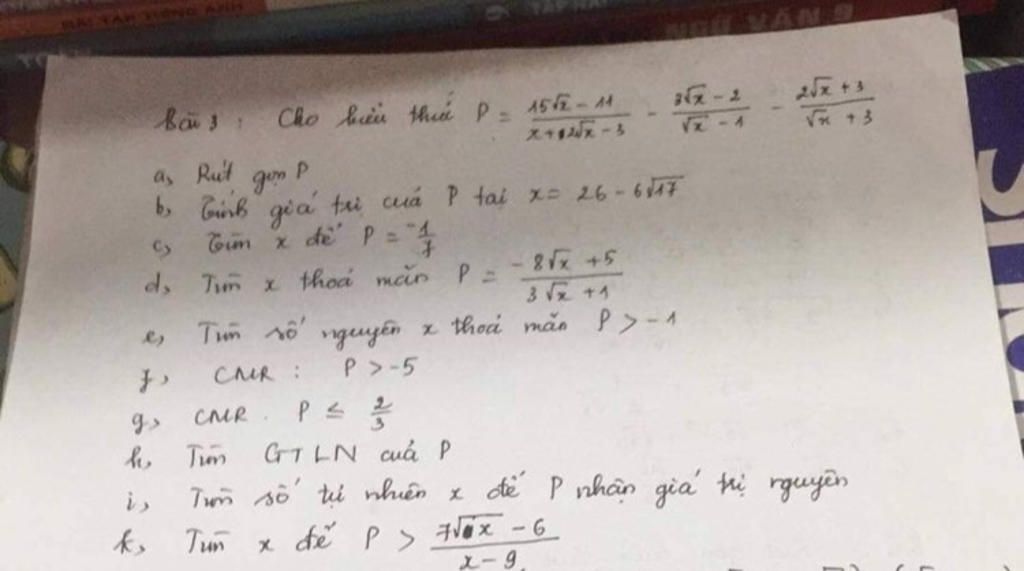 BÀI TẬP TIẾNG ANH
NGỮ VĂN 9
Bài 3 : Cho biểu thức P = \frac{15\sqrt{x} - 11}{x + 2\sqrt{x} - 3} - \frac{3\sqrt{x} - 2}{\sqrt{x} - 1} - \frac{2\sqrt{x} + 3}{\sqrt{x} + 3}
a, Rút gọn P
b, Tính giá trị của P tại x = 26 - 6\sqrt{17}
c, Tìm x để P = \frac{-1}{7}
d, Tìm x thoả mãn P = \frac{-8\sqrt{x} + 5}{3\sqrt{x} + 1}
e, Tìm số nguyên x thoả mãn P > -1
f, CMR : P > -5
g, CMR . P ≤ \frac{2}{3}
h, Tìm GTLN của P
i, Tìm số tự nhiên x để P nhận giá trị nguyên
k, Tìm x để P > \frac{7\sqrt{x} - 6}{x - 9}